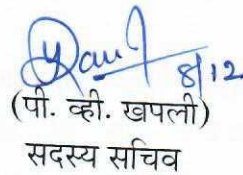 8/12
(पी. व्ही. खपली)
सदस्य सचिव